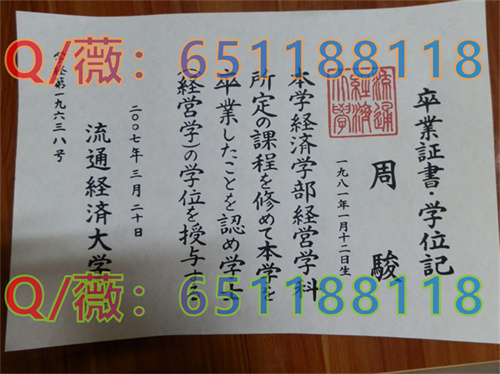 Q/薇：651188118
卒業証書・学位記
周 駿
一九八一年一月十二日生
本学経済学部経営学科
所定の課程を修めて本学を
卒業したことを認め学士
（経営学）の学位を授与する
二〇〇七年 三月 二十日
流通経済大学
第一九六三八号
流通経済大学
Q/薇：651188118